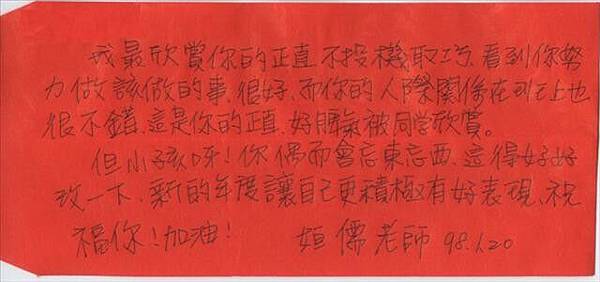 我最欣賞你的正直、不投機取巧、看到你努
力做該做的事、很好、而你的人際關係在班上也
很不錯、這是你的正直、好脾氣被同学欣賞。
但小孩呀!你偶而會忘東忘西、這得好好
改一下、新的年度讓自己更積極有好表現、祝
福你!加油! 姮儒老師 98.1.20